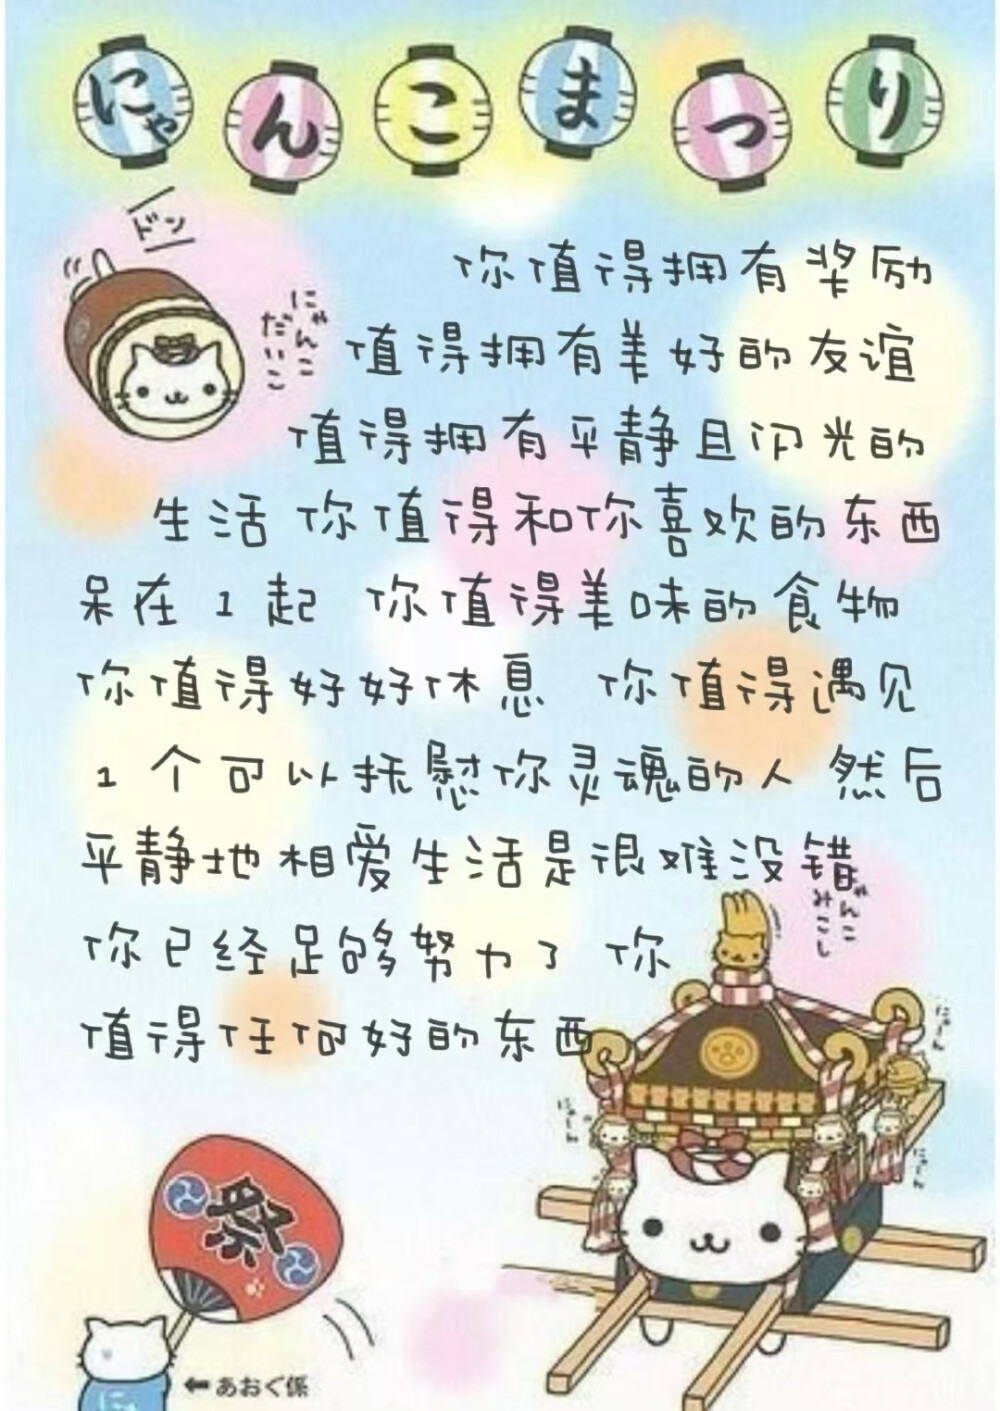 にゃんこまつり
ドン
にゃんこ
だいこ
你值得拥有奖励
值得拥有美好的友谊
值得拥有平静且闪光的
生活 你值得和你喜欢的东西
呆在1起 你值得美味的食物
你值得好好休息 你值得遇见
1个可以抚慰你灵魂的人 然后
平静地相爱生活是很难没错
你已经足够努力了 你
值得任何好的东西
ゃんこ
みこし
にゃ〜ん
にゃ〜ん
にゃ〜ん
祭
←あおぐ係
にゃ